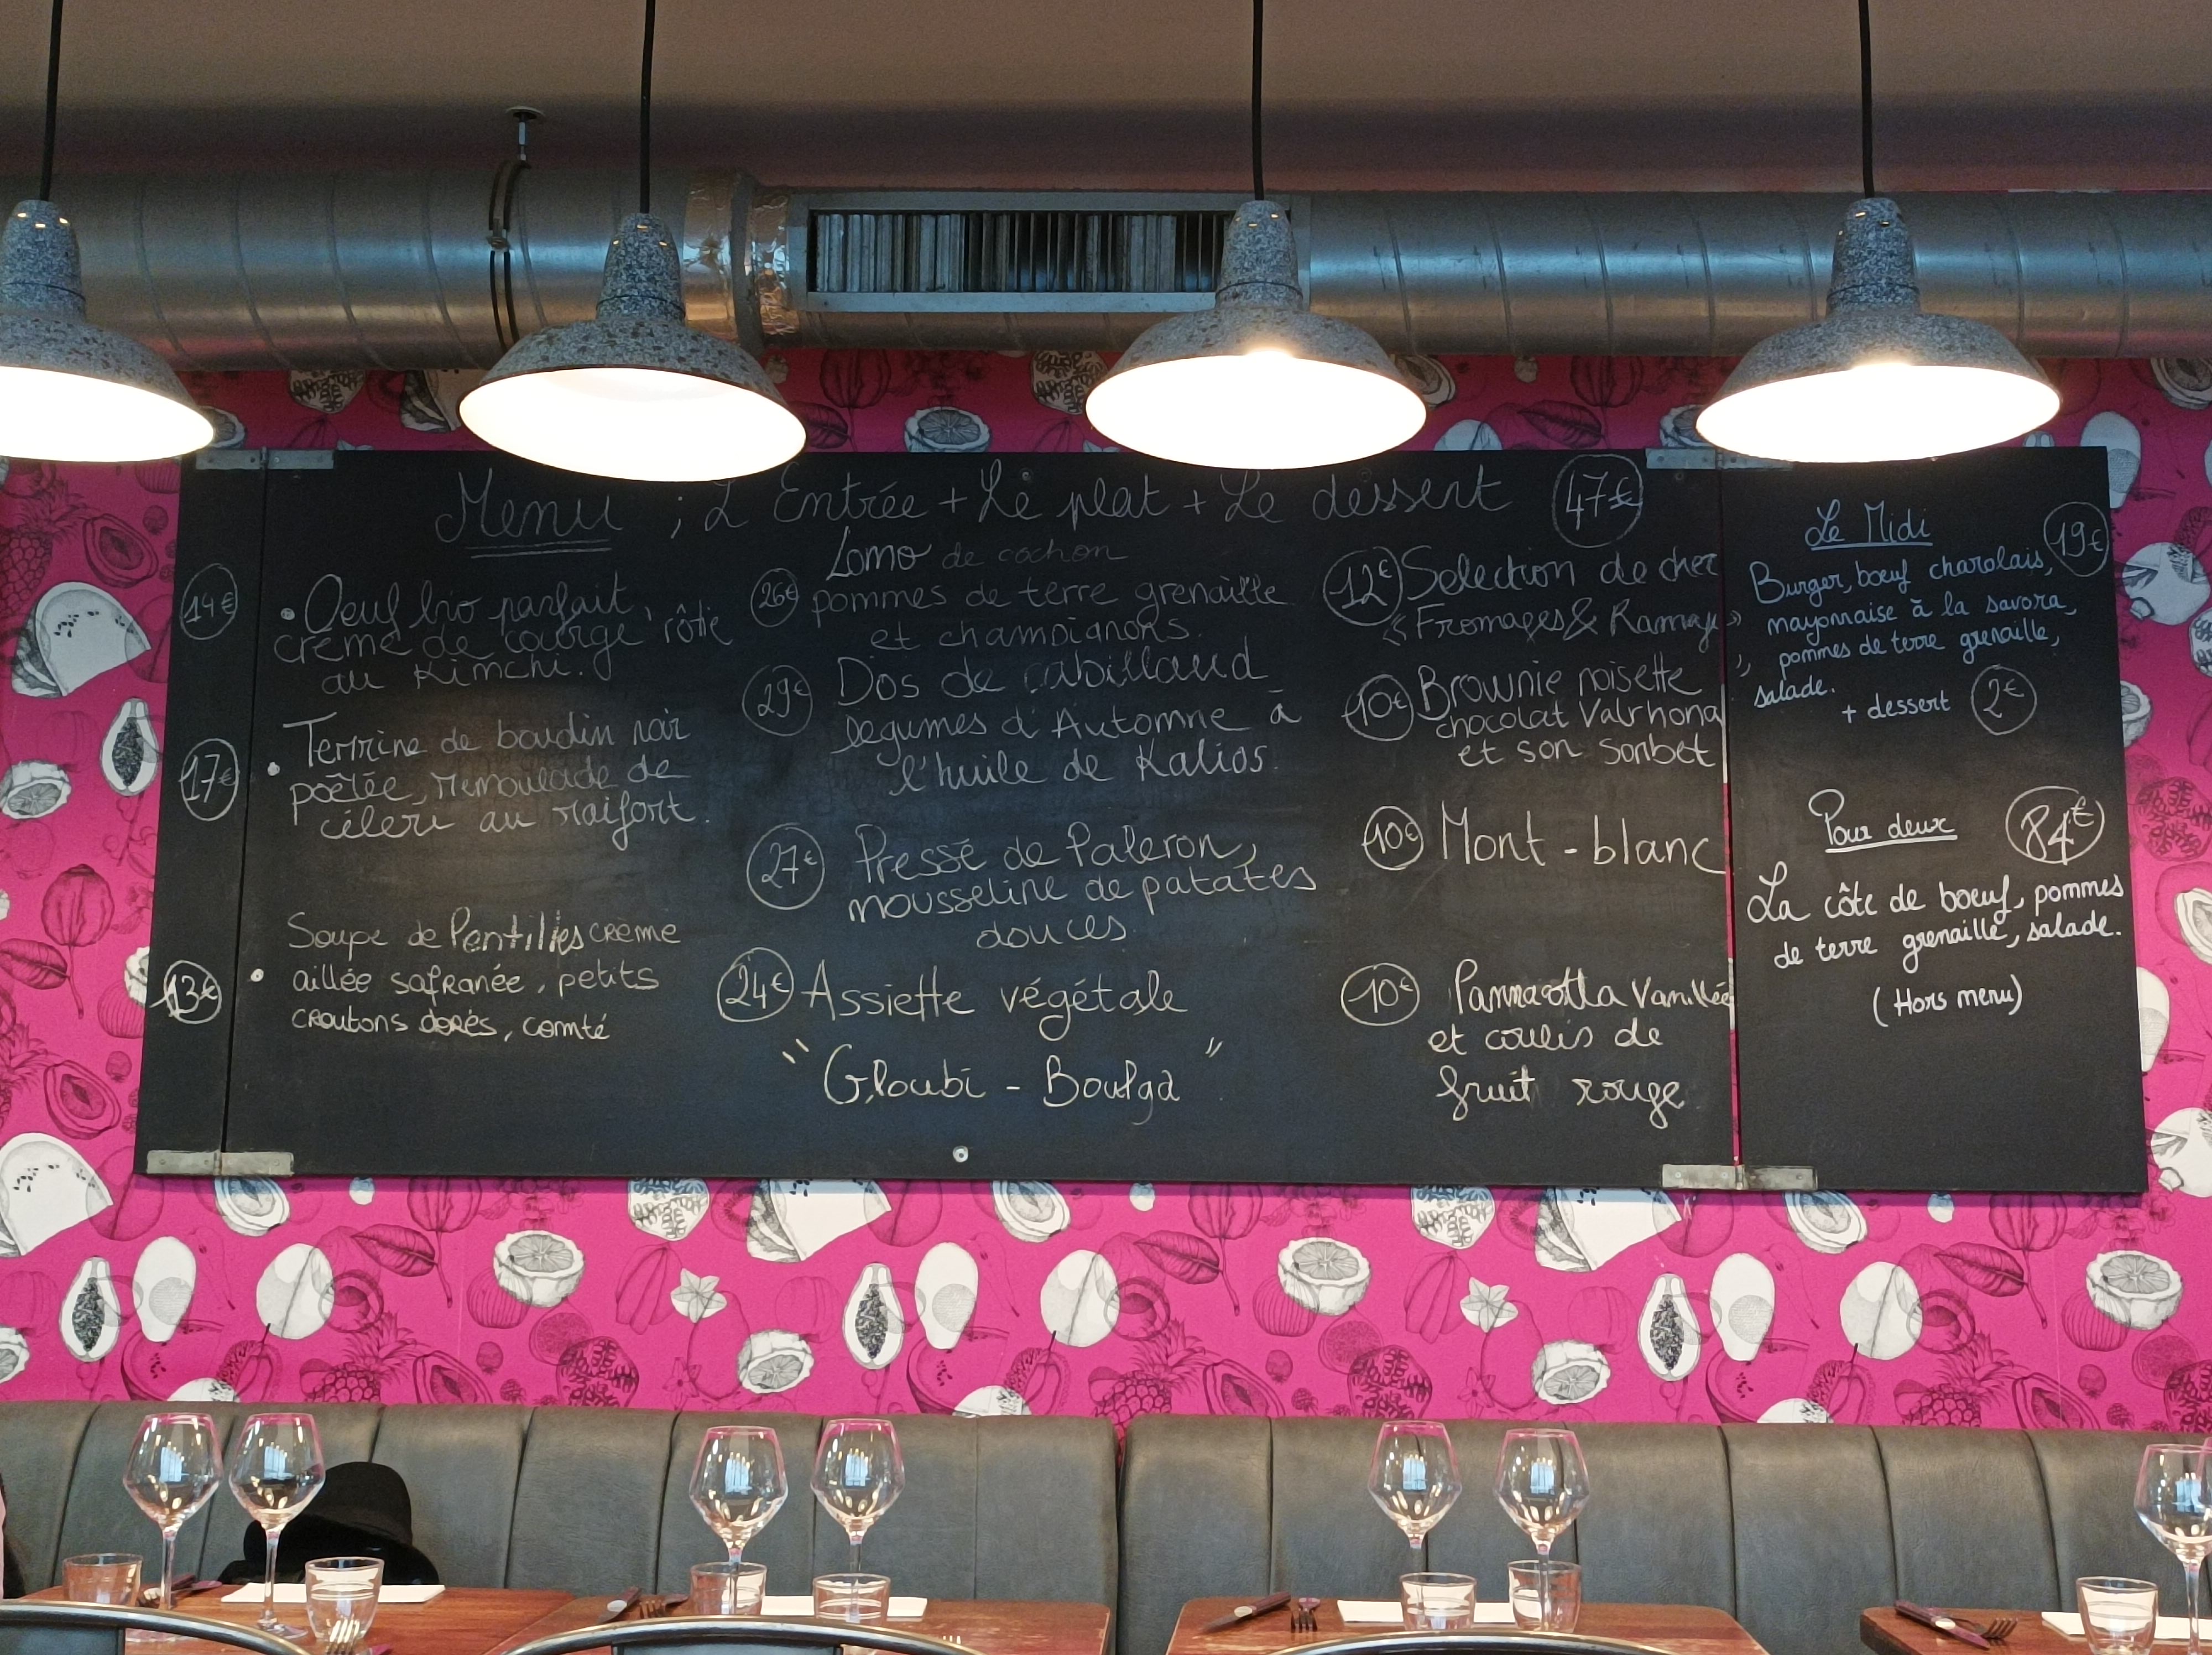 Menu ; L'Entrée + Le plat + Le dessert 47€
14€
• Oeuf bio parfait,
crème de courge rôtie
au Kimchi.
17€
• Terrine de boudin noir
poêlée, remoulade de
céleri au raifort.
13€
Soupe de lentilles crème
• aillée safranée, petits
croutons dorés, comté
Lomo de cochon
26€ pommes de terre grenaille
et champignons.
29€ Dos de cabillaud
legumes d'Automne à
l'huile de Kalios.
27€ Pressé de Paleron,
mousseline de patates
douces
24€ Assiette végétale
"Gloubi - Boulga"
12€ Selection de chez
"Fromages & Ramage"
10€ Brownie noisette
chocolat Valrhona
et son sorbet
10€ Mont - blanc
10€ Pannacotta Vanillée
et coulis de
fruit rouge
Le Midi 19€
Burger, boeuf charolais,
mayonnaise à la savora,
pommes de terre grenaille,
salade.
+ dessert 2€
Pour deux 84€
La côte de boeuf, pommes
de terre grenaille, salade.
(Hors menu)